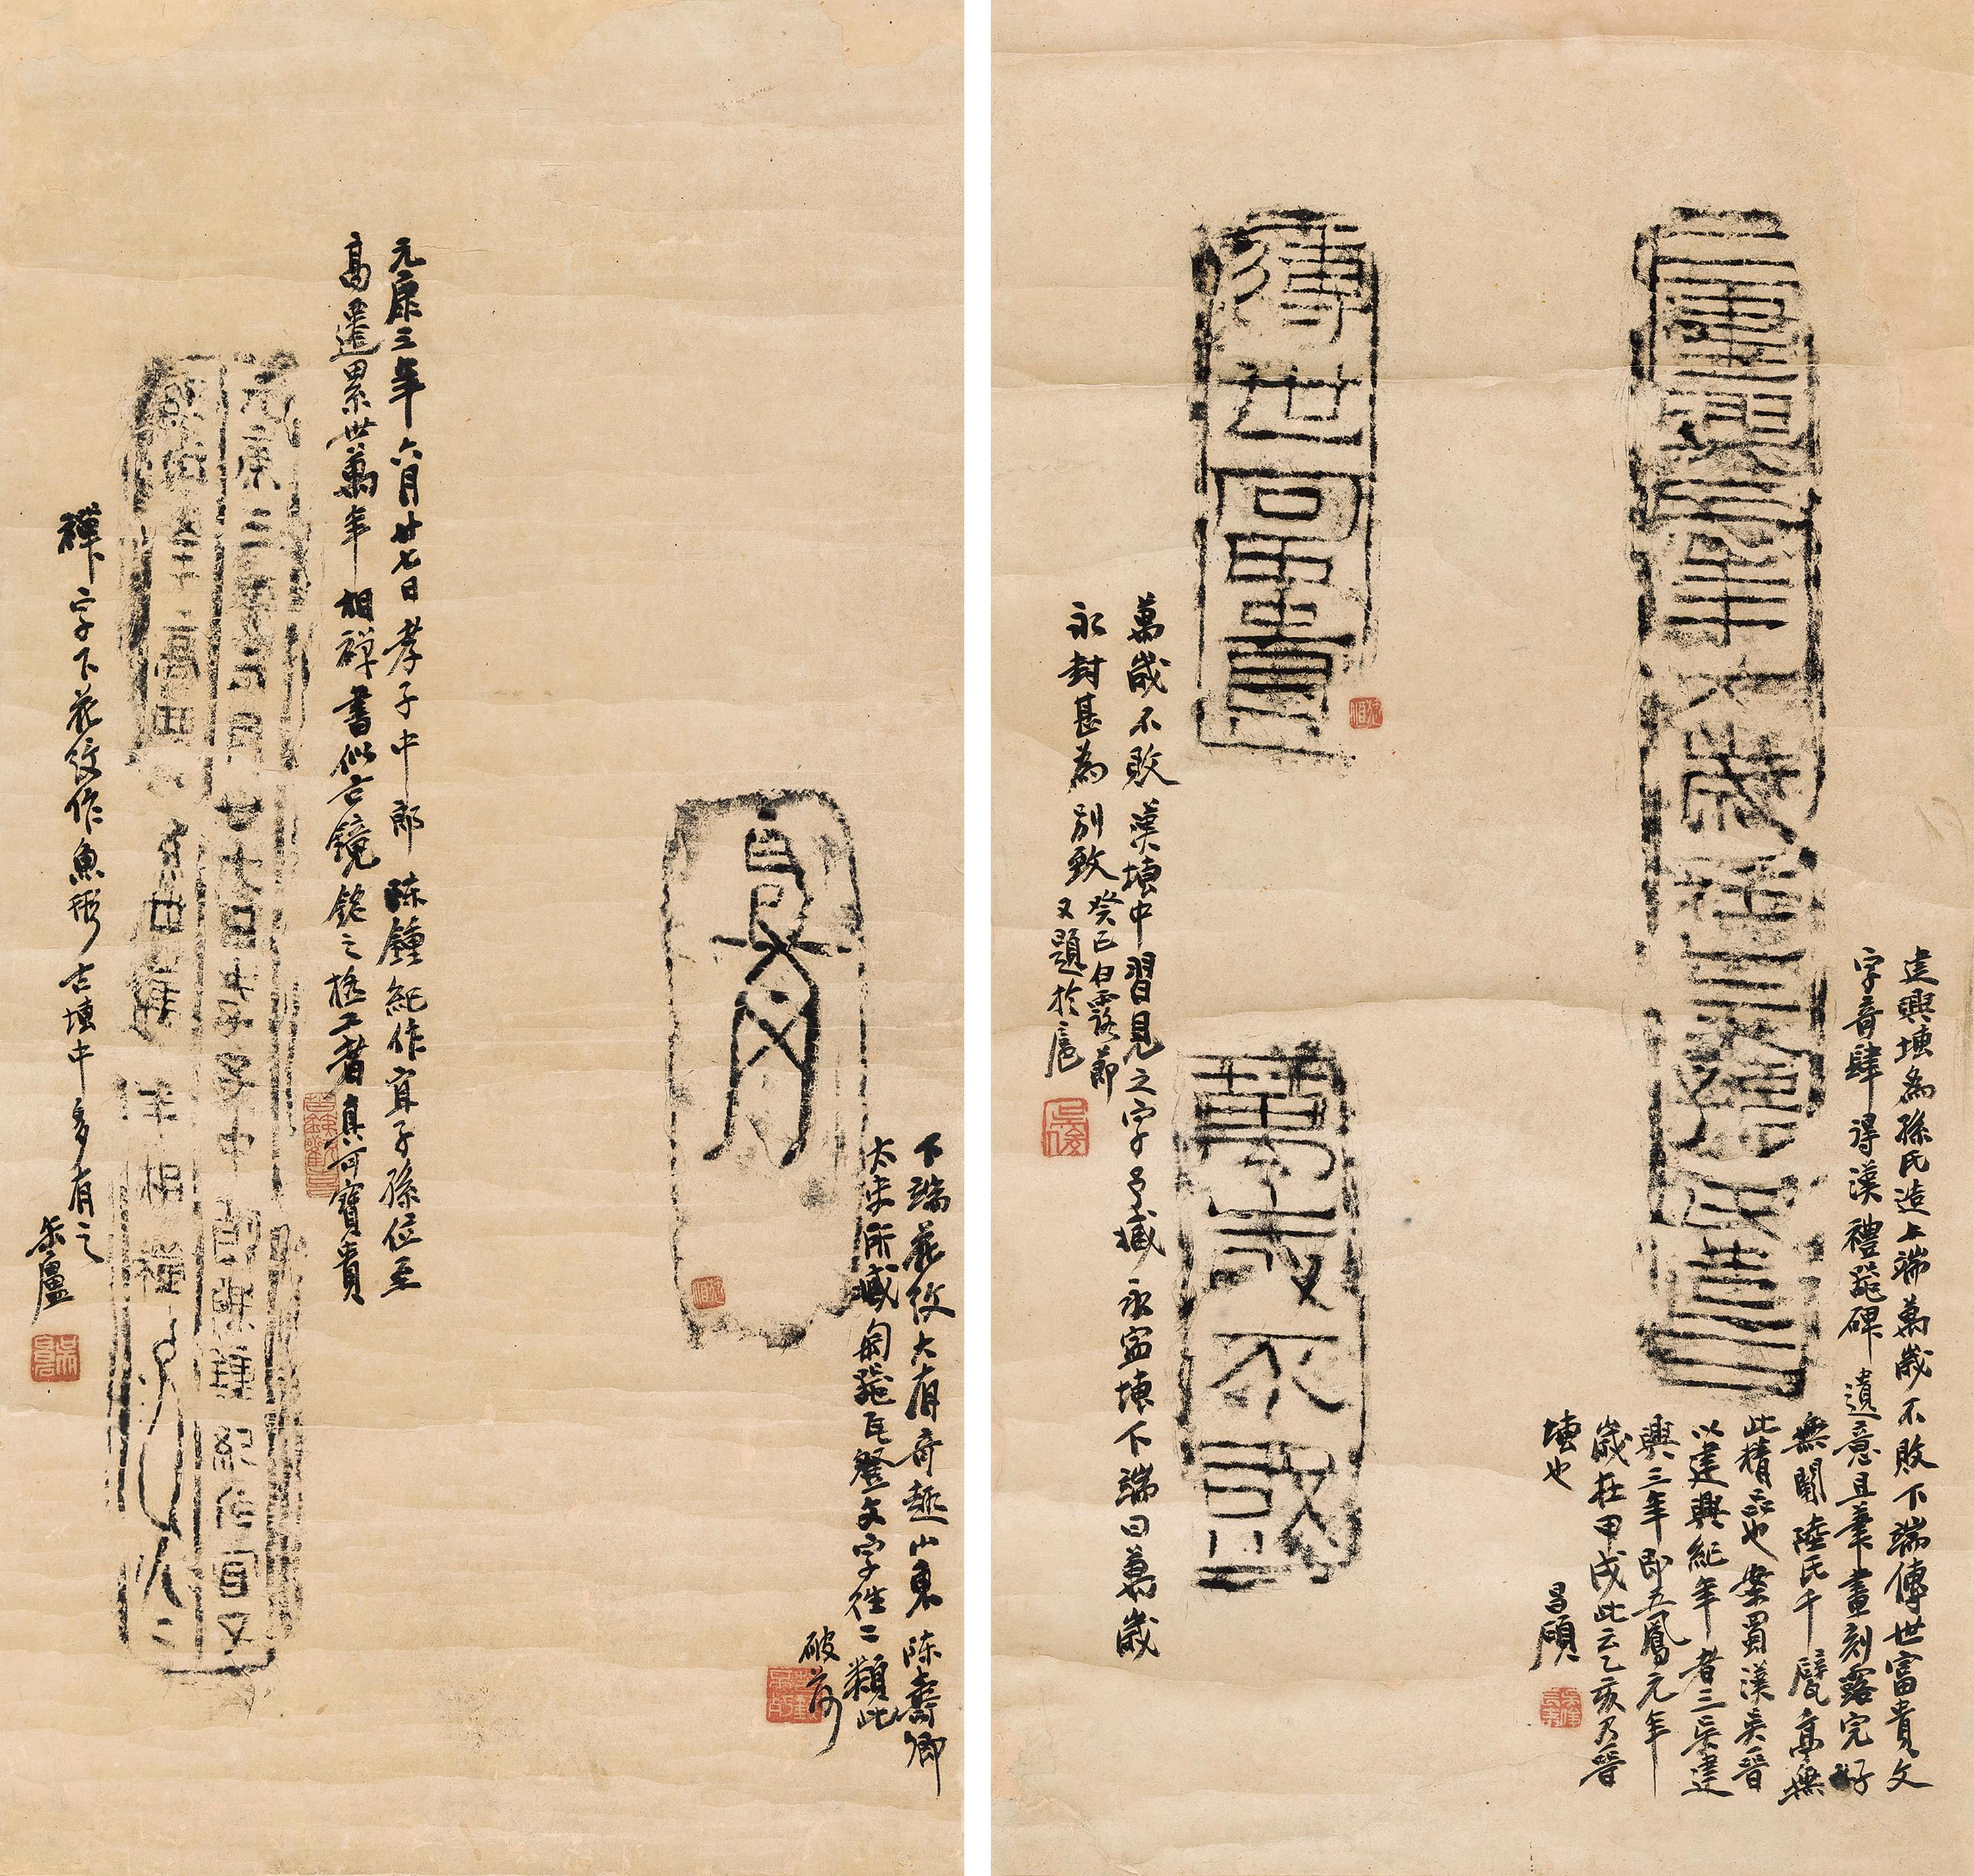 建興三年太歲在乙亥孫氏造
建興塼為孫氏造上端萬歲不敗下端傳世富貴文
字奇肆得漢禮器碑遺意且筆畫刻露完好
無闕陸氏千甓亭無
此精品也案蜀漢吳晉
以建興紀年者三吳建
興三年即五鳳元年
歲在甲戌此云乙亥乃晉
塼也
昌碩
傳世富貴
萬歲不敗
萬歲不敗漢塼中習見之字予藏永寧塼下端曰萬歲
永封甚為別致
癸巳白露節
又題於扈
下端花紋大有奇趣山東陳壽卿
太史所藏匋器瓦登文字往二類此
破荷
元康三年六月廿七日孝子中郎陳鍾紀作宜子孫位至
高遷累世萬年相禪書似古鏡銘之極工者真可寶貴
元康三年六月廿七日孝子中郎陳鍾紀作宜子
禪字下花紋作魚形古塼中多有之
缶廬